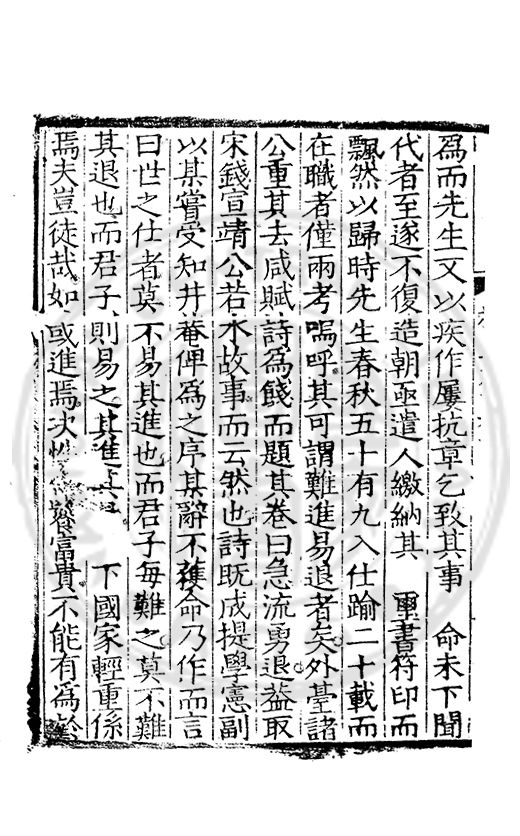 爲而先生又以疾作屢抗章乞致其事　命未下聞
代者至遂不復造朝亟遣人繳納其　璽書符印而
飄然以歸時先生春秋五十有九入仕踰二十載而
在職者僅兩考嗚呼其可謂難進易退者矣外臺諸
公重其去咸賦詩爲餞而題其卷曰急流勇退葢取
宋錢宣靖公若水故事而云然也詩既成提學憲副
以某嘗受知井菴俾爲之序其辭不獲命乃作而言
曰世之仕者莫不易其進也而君子每難之莫不難
其退也而君子則易之其進　下國家輕重係
焉夫豈徒哉如或進焉次　饕富貴不能有爲於